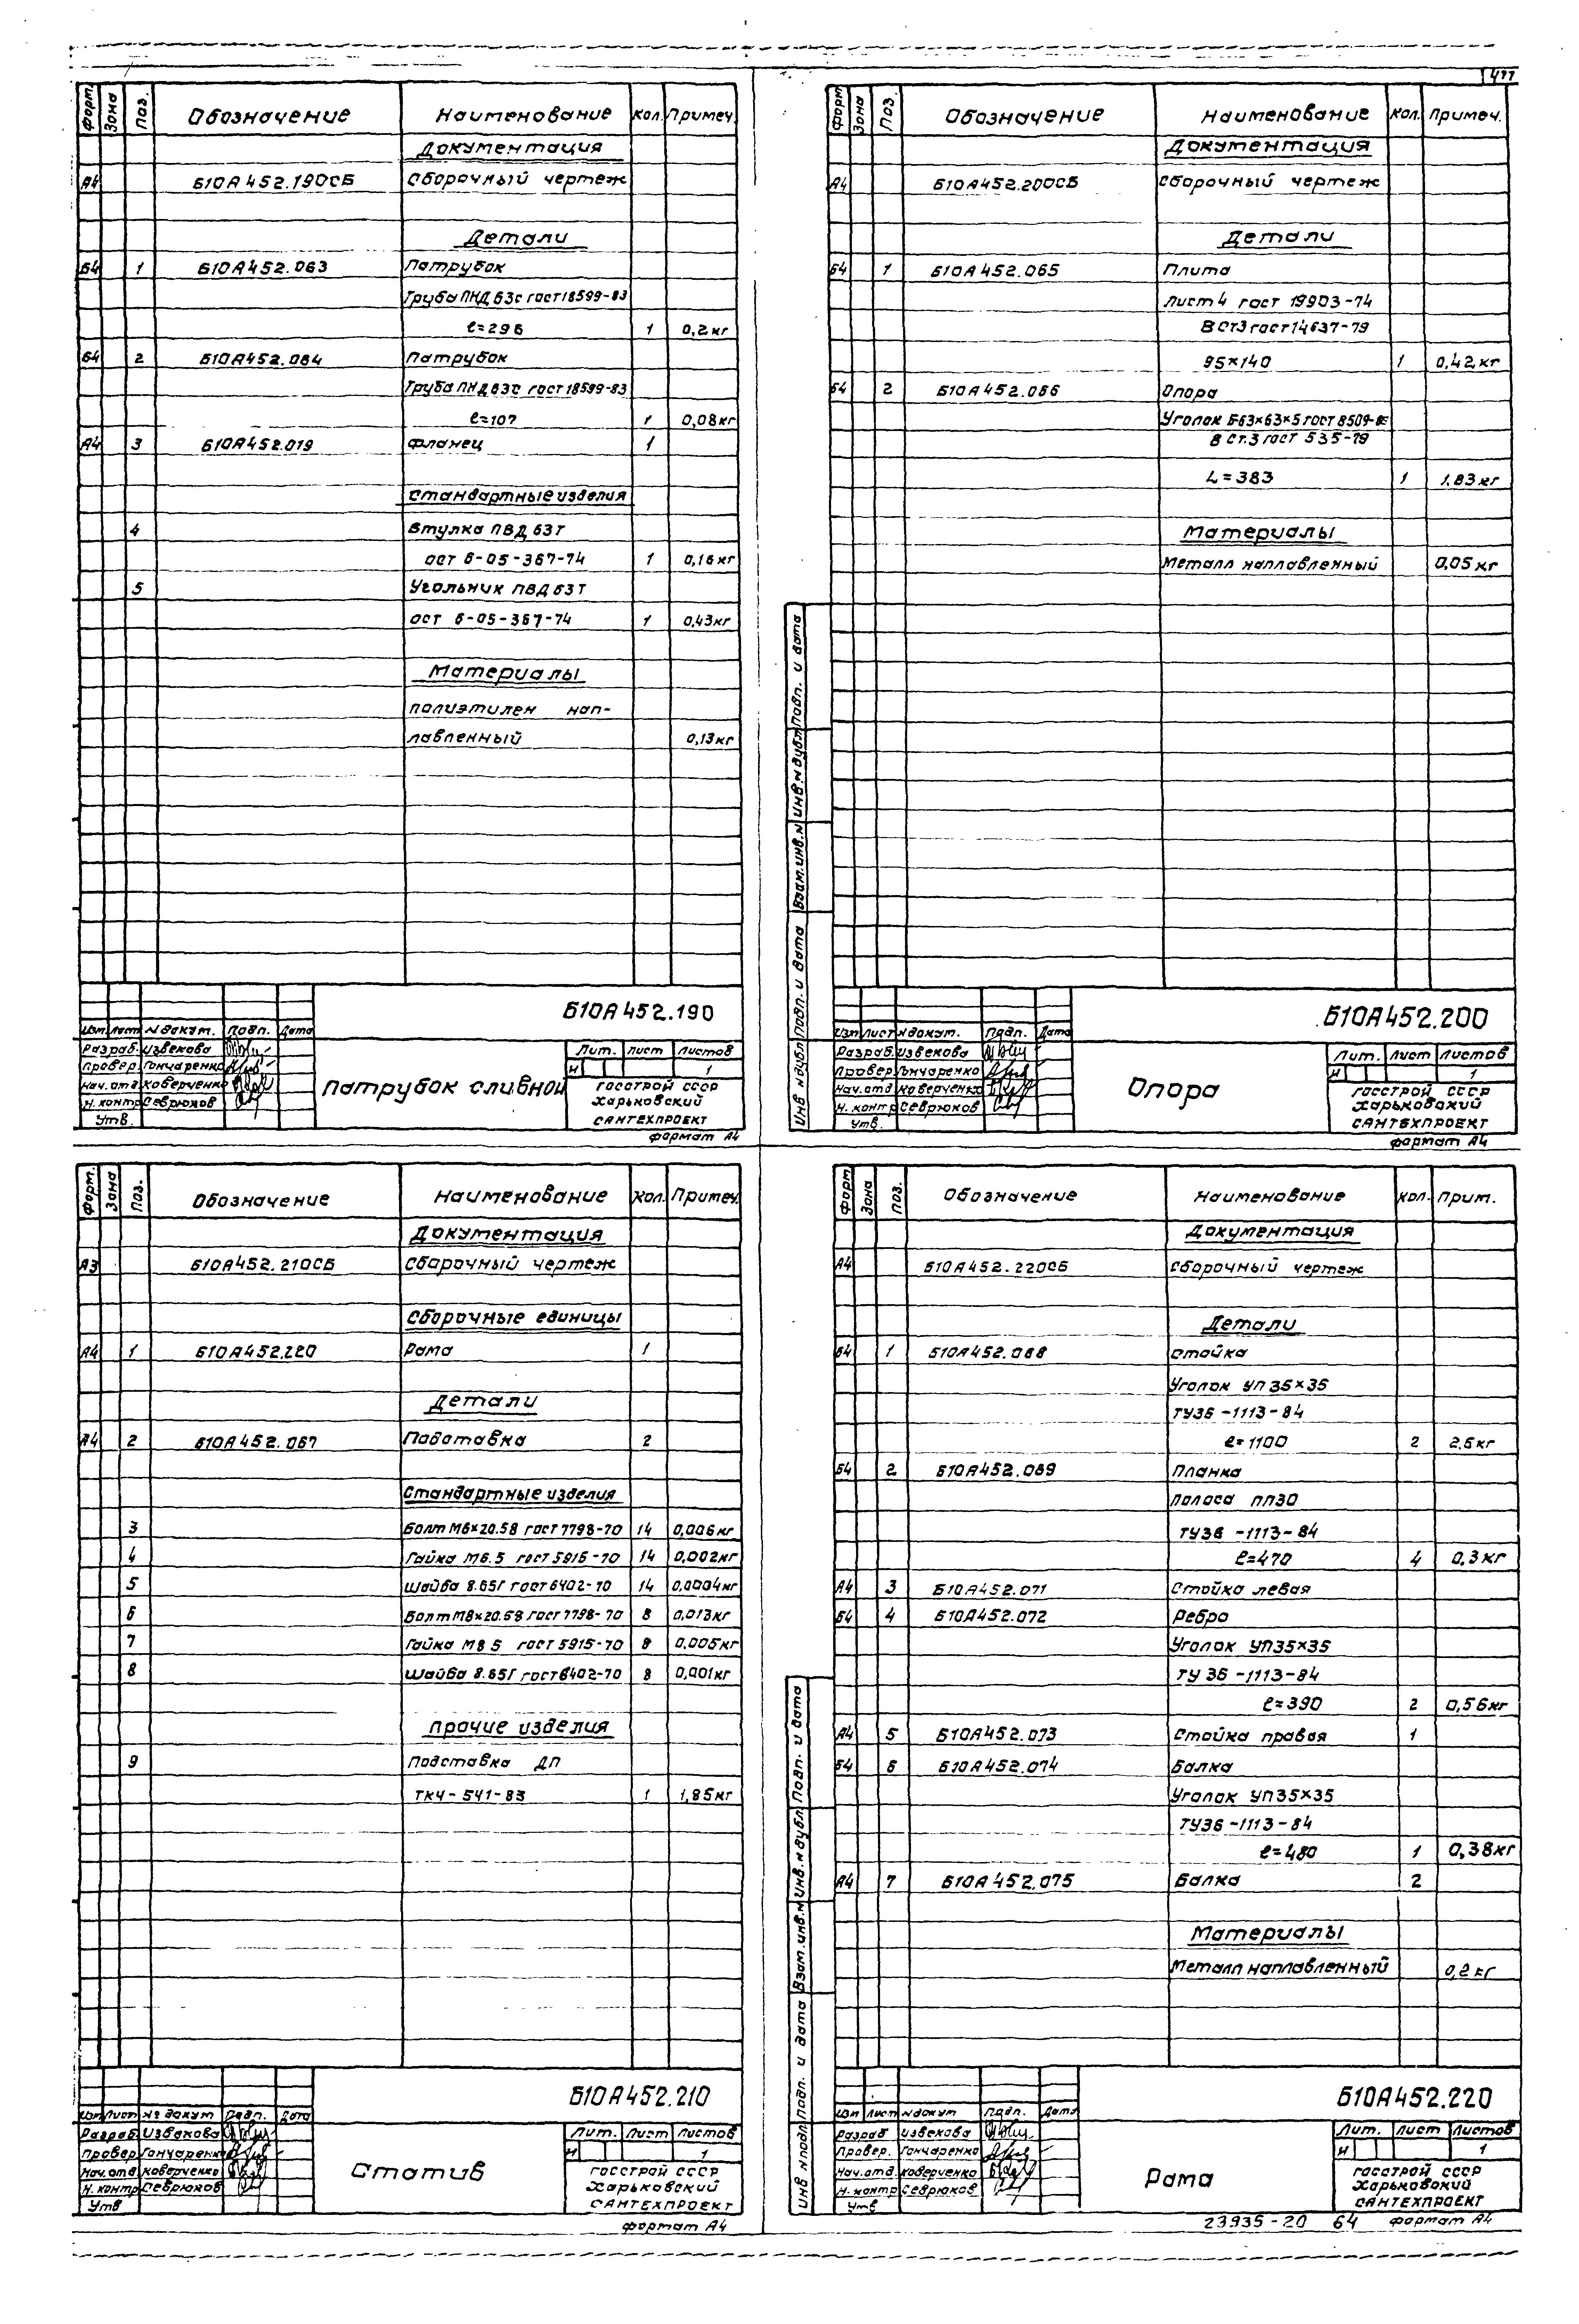 Форм. Зона Поз. Обозначение Наименование Кол. Примеч.
Документация
А4 Б10А452.190СБ Сборочный чертеж
Детали
Б4 1 Б10А452.063 Патрубок
Труба ПНД 63С ГОСТ 18599-83
ℓ=296 1 0,2 кг
Б4 2 Б10А452.064 Патрубок
Труба ПНД 63С ГОСТ 18599-83
ℓ=107 1 0,08 кг
А4 3 Б10А452.019 Фланец 1
Стандартные изделия
4 Втулка ПВД 63Т
ОСТ 6-05-367-74 1 0,16 кг
5 Угольник ПВД 63Т
ОСТ 6-05-367-74 1 0,43 кг
Материалы
Полиэтилен нап-
лавленный 0,13 кг
Б10А452.190
Изм. Лист № докум. Подп. Дата
Разраб. Извекова
Провер. Гончаренко
Нач. отд. Коверченко
Н. контр. Севрюков
Утв.
Патрубок сливной
Лит. Лист Листов
И 1
ГОССТРОЙ СССР
Харьковский
САНТЕХПРОЕКТ
Формат А4
Форм Зона Поз. Обозначение Наименование Кол. Примеч.
Документация
А4 Б10А452.200СБ Сборочный чертеж
Детали
Б4 1 Б10А452.065 Плита
Лист 4 ГОСТ 19903-74
В Ст3 ГОСТ 14637-79
95×140 1 0,42 кг
Б4 2 Б10А452.066 Опора
Уголок Б-63×63×5 ГОСТ 8509-
В Ст.3 ГОСТ 535-79
L=383 1 1,83 кг
Материалы
Металл наплавленный 0,05 кг
Инв № дубл Подп. и дата Взам. инв. № Инв. № дубл Подп. и дата
Б10А452.200
Изм Лист № докум. Подп. Дата
Разраб. Извекова
Провер. Гончаренко
Нач. отд Коверченко
Н. контр Севрюков
Утв.
Опора
Лит. Лист Листов
И 1
ГОССТРОЙ СССР
Харьковский
САНТЕХПРОЕКТ
Формат А4
Форм. Зона Поз. Обозначение Наименование Кол. Примеч.
Документация
А3 Б10А452.210СБ Сборочный чертеж
Сборочные единицы
А4 1 Б10А452.220 Рама 1
Детали
А4 2 Б10А452.067 Подставка 2
Стандартные изделия
3 Болт М6×20.58 ГОСТ 7798-70 14 0,006 кг
4 Гайка М6.5 ГОСТ 5915-70 14 0,002 кг
5 Шайба 8.65Г ГОСТ 6402-70 14 0,0004 кг
6 Болт М8×20.58 ГОСТ 7798-70 8 0,013 кг
7 Гайка М8 5 ГОСТ 5915-70 8 0,005 кг
8 Шайба 8.65Г ГОСТ 6402-70 8 0,001 кг
Прочие изделия
9 Подставка ДП
ТК4-541-83 1 1,85 кг
Б10А452.210
Изм Лист № докум Подп. Дата
Разраб Извекова
Провер Гончаренко
Нач. отд Коверченко
Н. контр Севрюков
Утв
Статив
Лит. Лист Листов
И 1
ГОССТРОЙ СССР
Харьковский
САНТЕХПРОЕКТ
Формат А4
Форм Зона Поз. Обозначение Наименование Кол. Прим.
Документация
А4 Б10А452.220СБ Сборочный чертеж
Детали
Б4 1 Б10А452.068 Стойка
Уголок УП 35×35
ТУ36-1113-84
ℓ=1100 2 2,6 кг
Б4 2 Б10А452.069 Планка
Полоса ПП30
ТУ36-1113-84
ℓ=470 4 0,3 кг
А4 3 Б10А452.071 Стойка левая
Б4 4 Б10А452.072 Ребро
Уголок УП35×35
ТУ 36-1113-84
ℓ=390 2 0,56 кг
А4 5 Б10А452.073 Стойка правая 1
Б4 6 Б10А452.074 Балка
Уголок УП35×35
ТУ36-1113-84
ℓ=480 1 0,38 кг
А4 7 Б10А452.075 Балка 2
Материалы
Металл наплавленный 0,2 кг
Инв № подл Подп. и дата Взам. инв. № Инв. № дубл. Подп. и дата
Б10А452.220
Изм Лист № докум Подп. Дата
Разраб Извекова
Провер. Гончаренко
Нач. отд. Коверченко
Н. контр Севрюков
Утв
Рама
Лит. Лист Листов
И 1
ГОССТРОЙ СССР
Харьковский
САНТЕХПРОЕКТ
23935-20 64 Формат А4